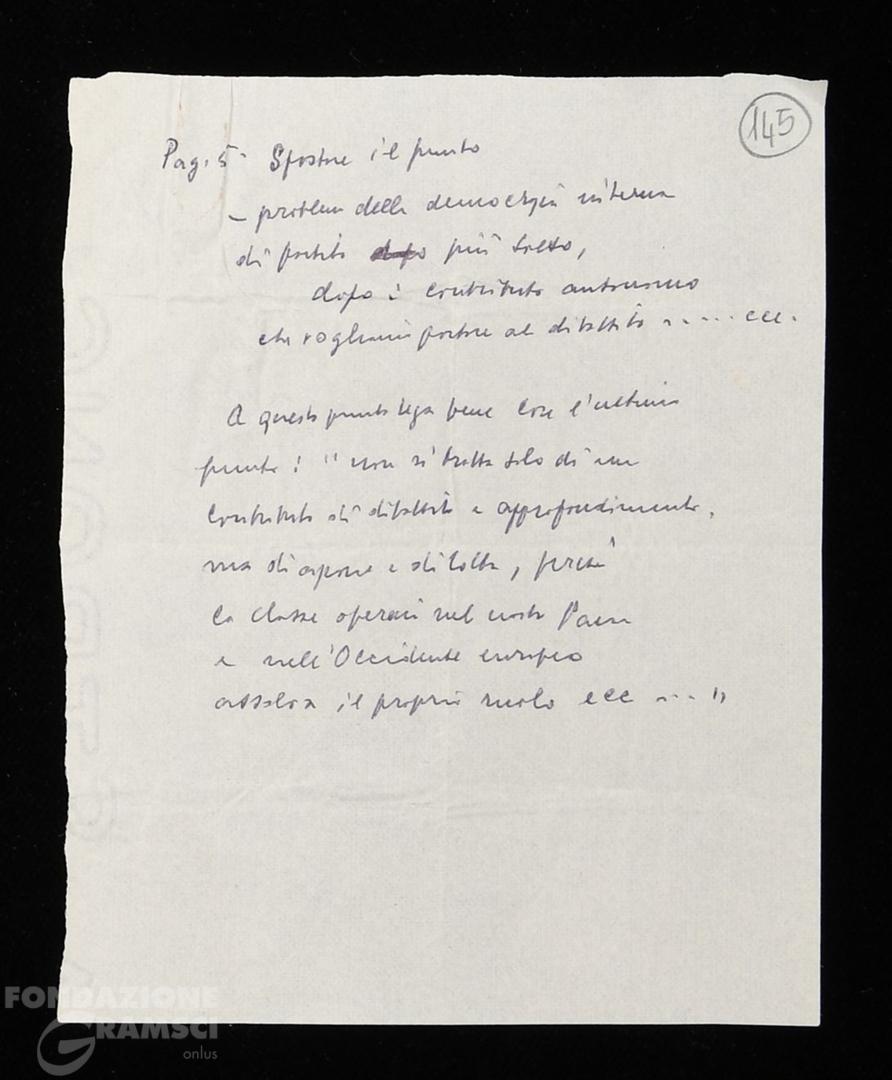 145
Pag. 5 - Spostare il punto
- problemi della democrazia interna
di partito dopo più sotto,
dopo : contributo autonomo
che vogliamo portare al dibattito ..... ecc.
A questo punto lega bene con l'ultimo
punto : "non si tratta solo di un
contributo di dibattito e approfondimento,
ma di azione e di lotta, perché
la classe operaia nel nostro Paese
e nell'Occidente europeo
assolva il proprio ruolo ecc ..."
FONDAZIONE
GRAMSCI
onlus